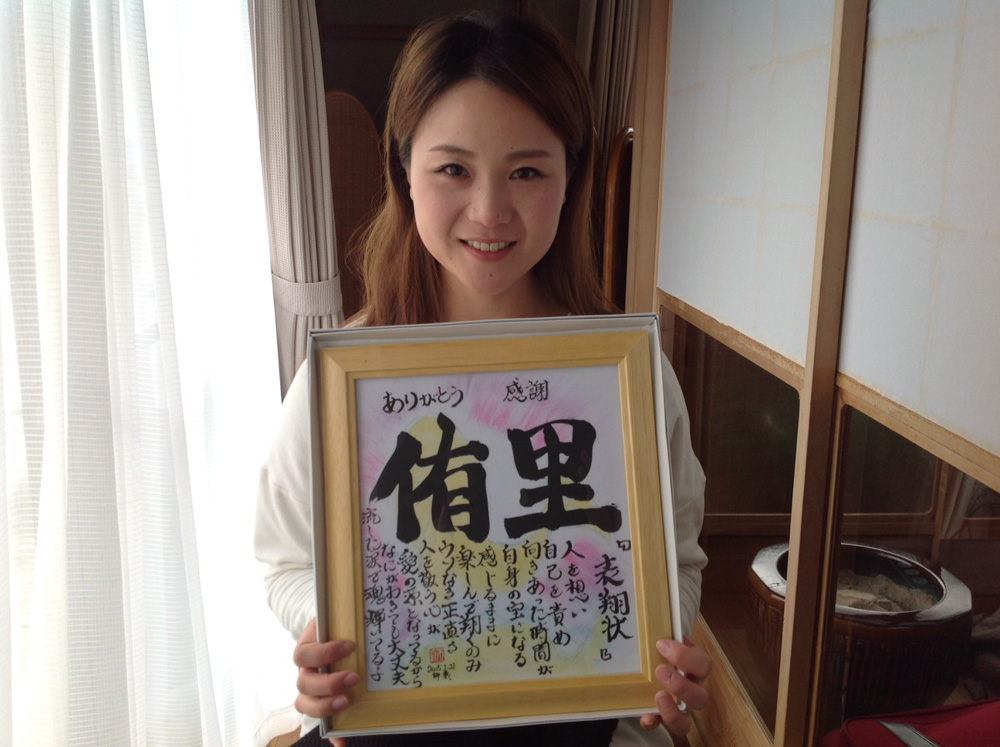 ありがとう 感謝
侑里
『表翔状』
人を想い
自己を責め
向きあった時間が
自身の宝になる
感じるままに
楽しんで翔くのみ
ウソなき正直さ
人を敬う心が
となってるから
なにがおきても大丈夫
流した涙で魂輝いてるよ